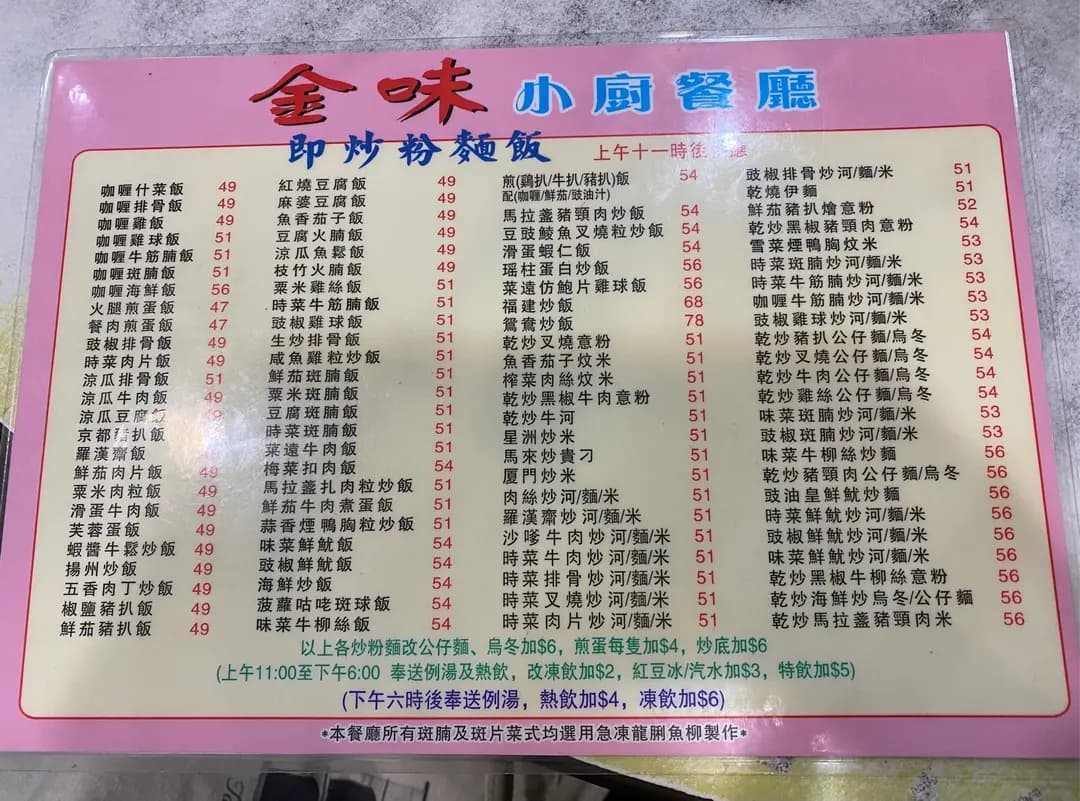 金味 小廚餐廳
即炒粉麵飯
上午十一時後
咖喱什菜飯 49
咖喱排骨飯 49
咖喱雞飯 49
咖喱雞球飯 51
咖喱牛筋腩飯 51
咖喱斑腩飯 51
咖喱海鮮飯 56
火腿煎蛋飯 47
餐肉煎蛋飯 47
豉椒排骨飯 49
時菜肉片飯 49
涼瓜排骨飯 51
涼瓜牛肉飯 49
涼瓜豆腐飯 49
京都豬扒飯
羅漢齋飯
鮮茄肉片飯 49
粟米肉粒飯 49
滑蛋牛肉飯 49
芙蓉蛋飯 49
蝦醬牛鬆炒飯 49
揚州炒飯 49
五香肉丁炒飯 49
椒鹽豬扒飯 49
鮮茄豬扒飯 49
紅燒豆腐飯 49
麻婆豆腐飯 49
魚香茄子飯 49
豆腐火腩飯 49
涼瓜魚鬆飯 49
枝竹火腩飯 49
粟米雞絲飯 51
時菜牛筋腩飯 51
豉椒雞球飯 51
生炒排骨飯 51
咸魚雞粒炒飯 51
鮮茄斑腩飯 51
粟米斑腩飯 51
豆腐斑腩飯 51
時菜斑腩飯 51
菜遠牛肉飯 51
梅菜扣肉飯 54
馬拉盞扎肉粒炒飯 51
鮮茄牛肉煮蛋飯 51
蒜香煙鴨胸粒炒飯 51
味菜鮮魷飯 54
豉椒鮮魷飯 54
海鮮炒飯 54
菠蘿咕咾斑球飯 54
味菜牛柳絲飯 54
煎(鷄扒/牛扒/豬扒)飯 54
配(咖喱/鮮茄/豉油汁)
馬拉盞豬頸肉炒飯 54
豆豉鯪魚叉燒粒炒飯 54
滑蛋蝦仁飯 54
瑤柱蛋白炒飯 56
菜遠仿鮑片雞球飯 56
福建炒飯 68
鴛鴦炒飯 78
乾炒叉燒意粉 51
魚香茄子炆米 51
榨菜肉絲炆米 51
乾炒黑椒牛肉意粉 51
乾炒牛河 51
星洲炒米 51
馬來炒貴刁 51
厦門炒米 51
肉絲炒河/麵/米 51
羅漢齋炒河/麵/米 51
沙嗲牛肉炒河/麵/米 51
時菜牛肉炒河/麵/米 51
時菜排骨炒河/麵/米 51
時菜叉燒炒河/麵/米 51
時菜肉片炒河/麵/米 51
豉椒排骨炒河/麵/米 51
乾燒伊麵 51
鮮茄豬扒燴意粉 52
乾炒黑椒豬頸肉意粉 54
雪菜煙鴨胸炆米 53
時菜斑腩炒河/麵/米 53
時菜牛筋腩炒河/麵/米 53
咖喱牛筋腩炒河/麵/米 53
豉椒雞球炒河/麵/米 53
乾炒豬扒公仔麵/烏冬 54
乾炒叉燒公仔麵/烏冬 54
乾炒牛肉公仔麵/烏冬 54
乾炒雞絲公仔麵/烏冬 54
味菜斑腩炒河/麵/米 53
豉椒斑腩炒河/麵/米 53
味菜牛柳絲炒麵 56
乾炒豬頸肉公仔麵/烏冬 56
豉油皇鮮魷炒麵 56
時菜鮮魷炒河/麵/米 56
豉椒鮮魷炒河/麵/米 56
味菜鮮魷炒河/麵/米 56
乾炒黑椒牛柳絲意粉 56
乾炒海鮮炒烏冬/公仔麵 56
乾炒馬拉盞豬頸肉米 56
以上各炒粉麵改公仔麵、烏冬加$6，煎蛋每隻加$4，炒底加$6
(上午11:00至下午6:00 奉送例湯及熱飲，改凍飲加$2，紅豆冰/汽水加$3，特飲加$5)
(下午六時後奉送例湯，熱飲加$4，凍飲加$6)
*本餐廳所有斑腩及斑片菜式均選用急凍龍脷魚柳製作*